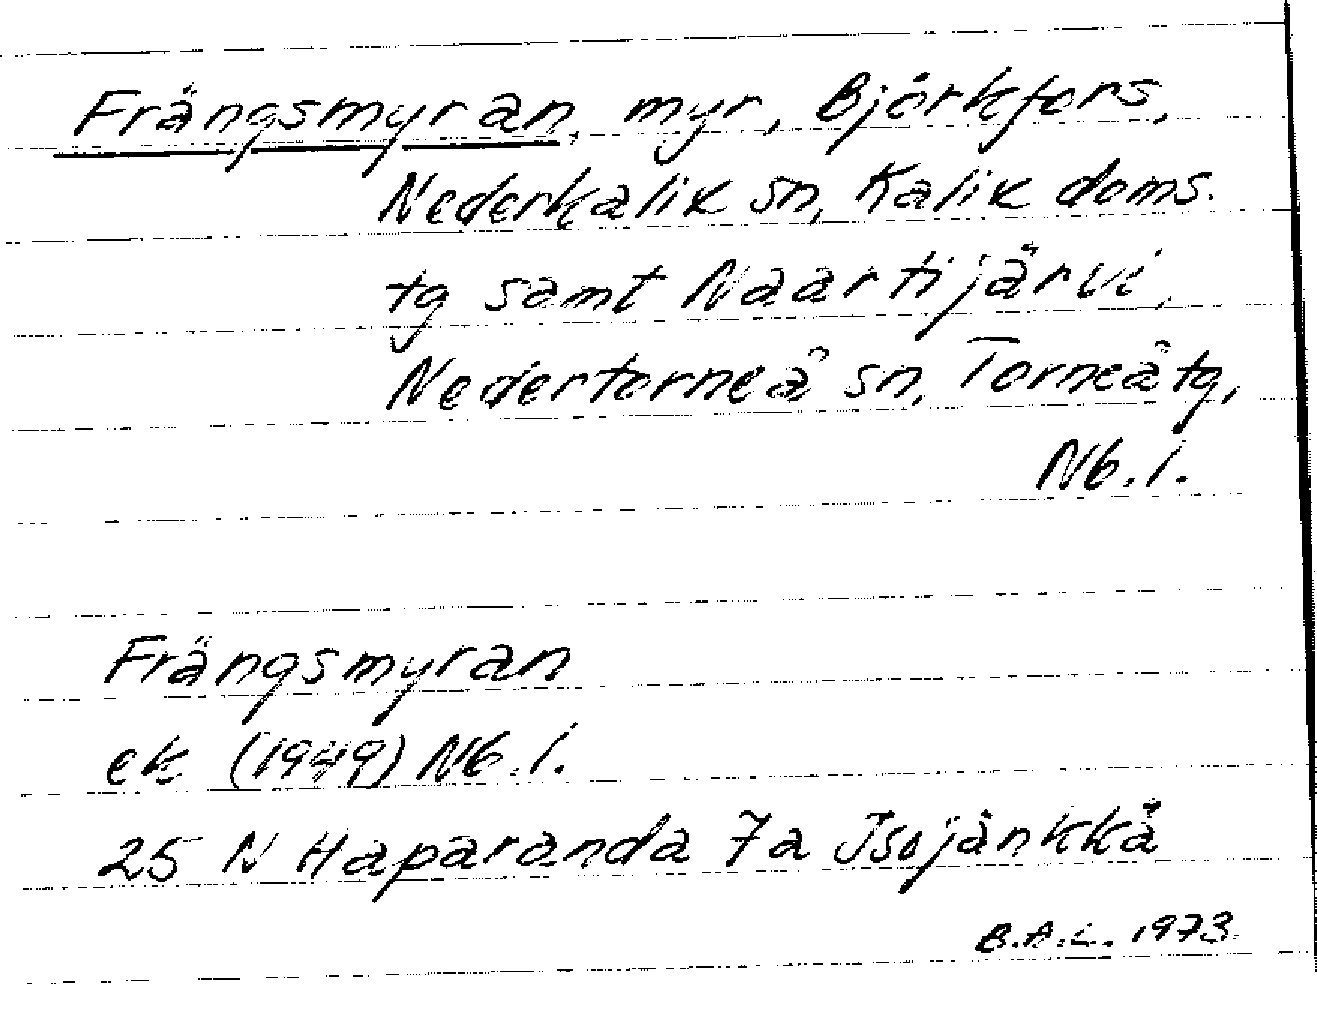 Frängsmyran, myr, Björkfors,
Nederkalix sn, Kalix doms.
tg samt Naartijärvi,
Nedertorneå sn, Torneå tg,
Nb. l.
Frängsmyran
ek (1949) Nb. l.
25 N Haparanda 7a Isojänkkä
B.A.L. 1973.